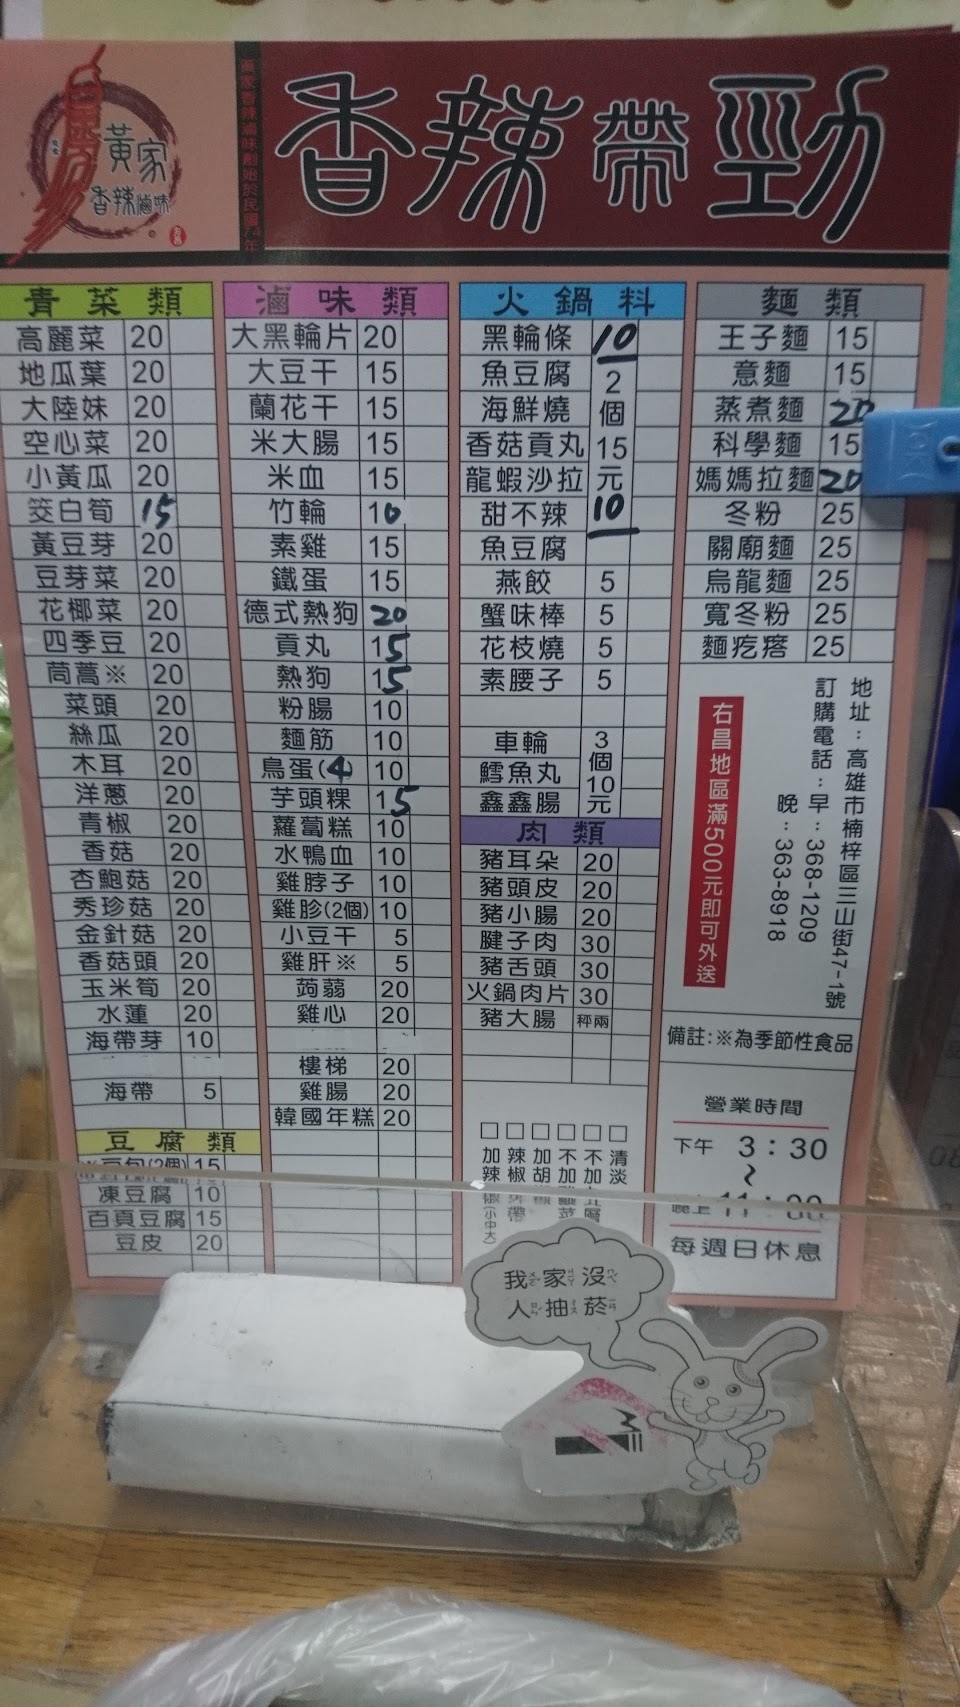 黃家
香辣滷味
黃家香辣滷味創始於民國74年
香辣帶勁
青菜類
高麗菜 20
地瓜葉 20
大陸妹 20
空心菜 20
小黃瓜 20
筊白筍 15
黃豆芽 20
豆芽菜 20
花椰菜 20
四季豆 20
茼蒿※ 20
菜頭 20
絲瓜 20
木耳 20
洋蔥 20
青椒 20
香菇 20
杏鮑菇 20
秀珍菇 20
金針菇 20
香菇頭 20
玉米筍 20
水蓮 20
海帶芽 10
海帶 5
豆腐類
※豆包(2個) 15
凍豆腐 10
百頁豆腐 15
豆皮 20
滷味類
大黑輪片 20
大豆干 15
蘭花干 15
米大腸 15
米血 15
竹輪 10
素雞 15
鐵蛋 15
德式熱狗 20
貢丸 15
熱狗 15
粉腸 10
麵筋 10
鳥蛋(4 10
芋頭粿 15
蘿蔔糕 10
水鴨血 10
雞脖子 10
雞胗(2個) 10
小豆干 5
雞肝※ 5
蒟蒻 20
雞心 20
樓梯 20
雞腸 20
韓國年糕 20
火鍋料
黑輪條 10
魚豆腐
海鮮燒
香菇貢丸
龍蝦沙拉
2個15元
甜不辣 10
魚豆腐
燕餃 5
蟹味棒 5
花枝燒 5
素腰子 5
車輪
鱈魚丸
鑫鑫腸
3個10元
肉類
豬耳朵 20
豬頭皮 20
豬小腸 20
腱子肉 30
豬舌頭 30
火鍋肉片 30
豬大腸 秤兩
□清淡
□不加
□不加酸菜
□加胡椒
□辣椒
□加辣 (小中大)
麵類
王子麵 15
意麵 15
蒸煮麵 20
科學麵 15
媽媽拉麵 20
冬粉 25
關廟麵 25
烏龍麵 25
寬冬粉 25
麵疙瘩 25
地址：高雄市楠梓區三山街47-1號
訂購電話：早：368-1209
晚：363-8918
右昌地區滿500元即可外送
備註:※為季節性食品
營業時間
下午 3：30
~
晚上 11：00
每週日休息
我家沒
人抽菸